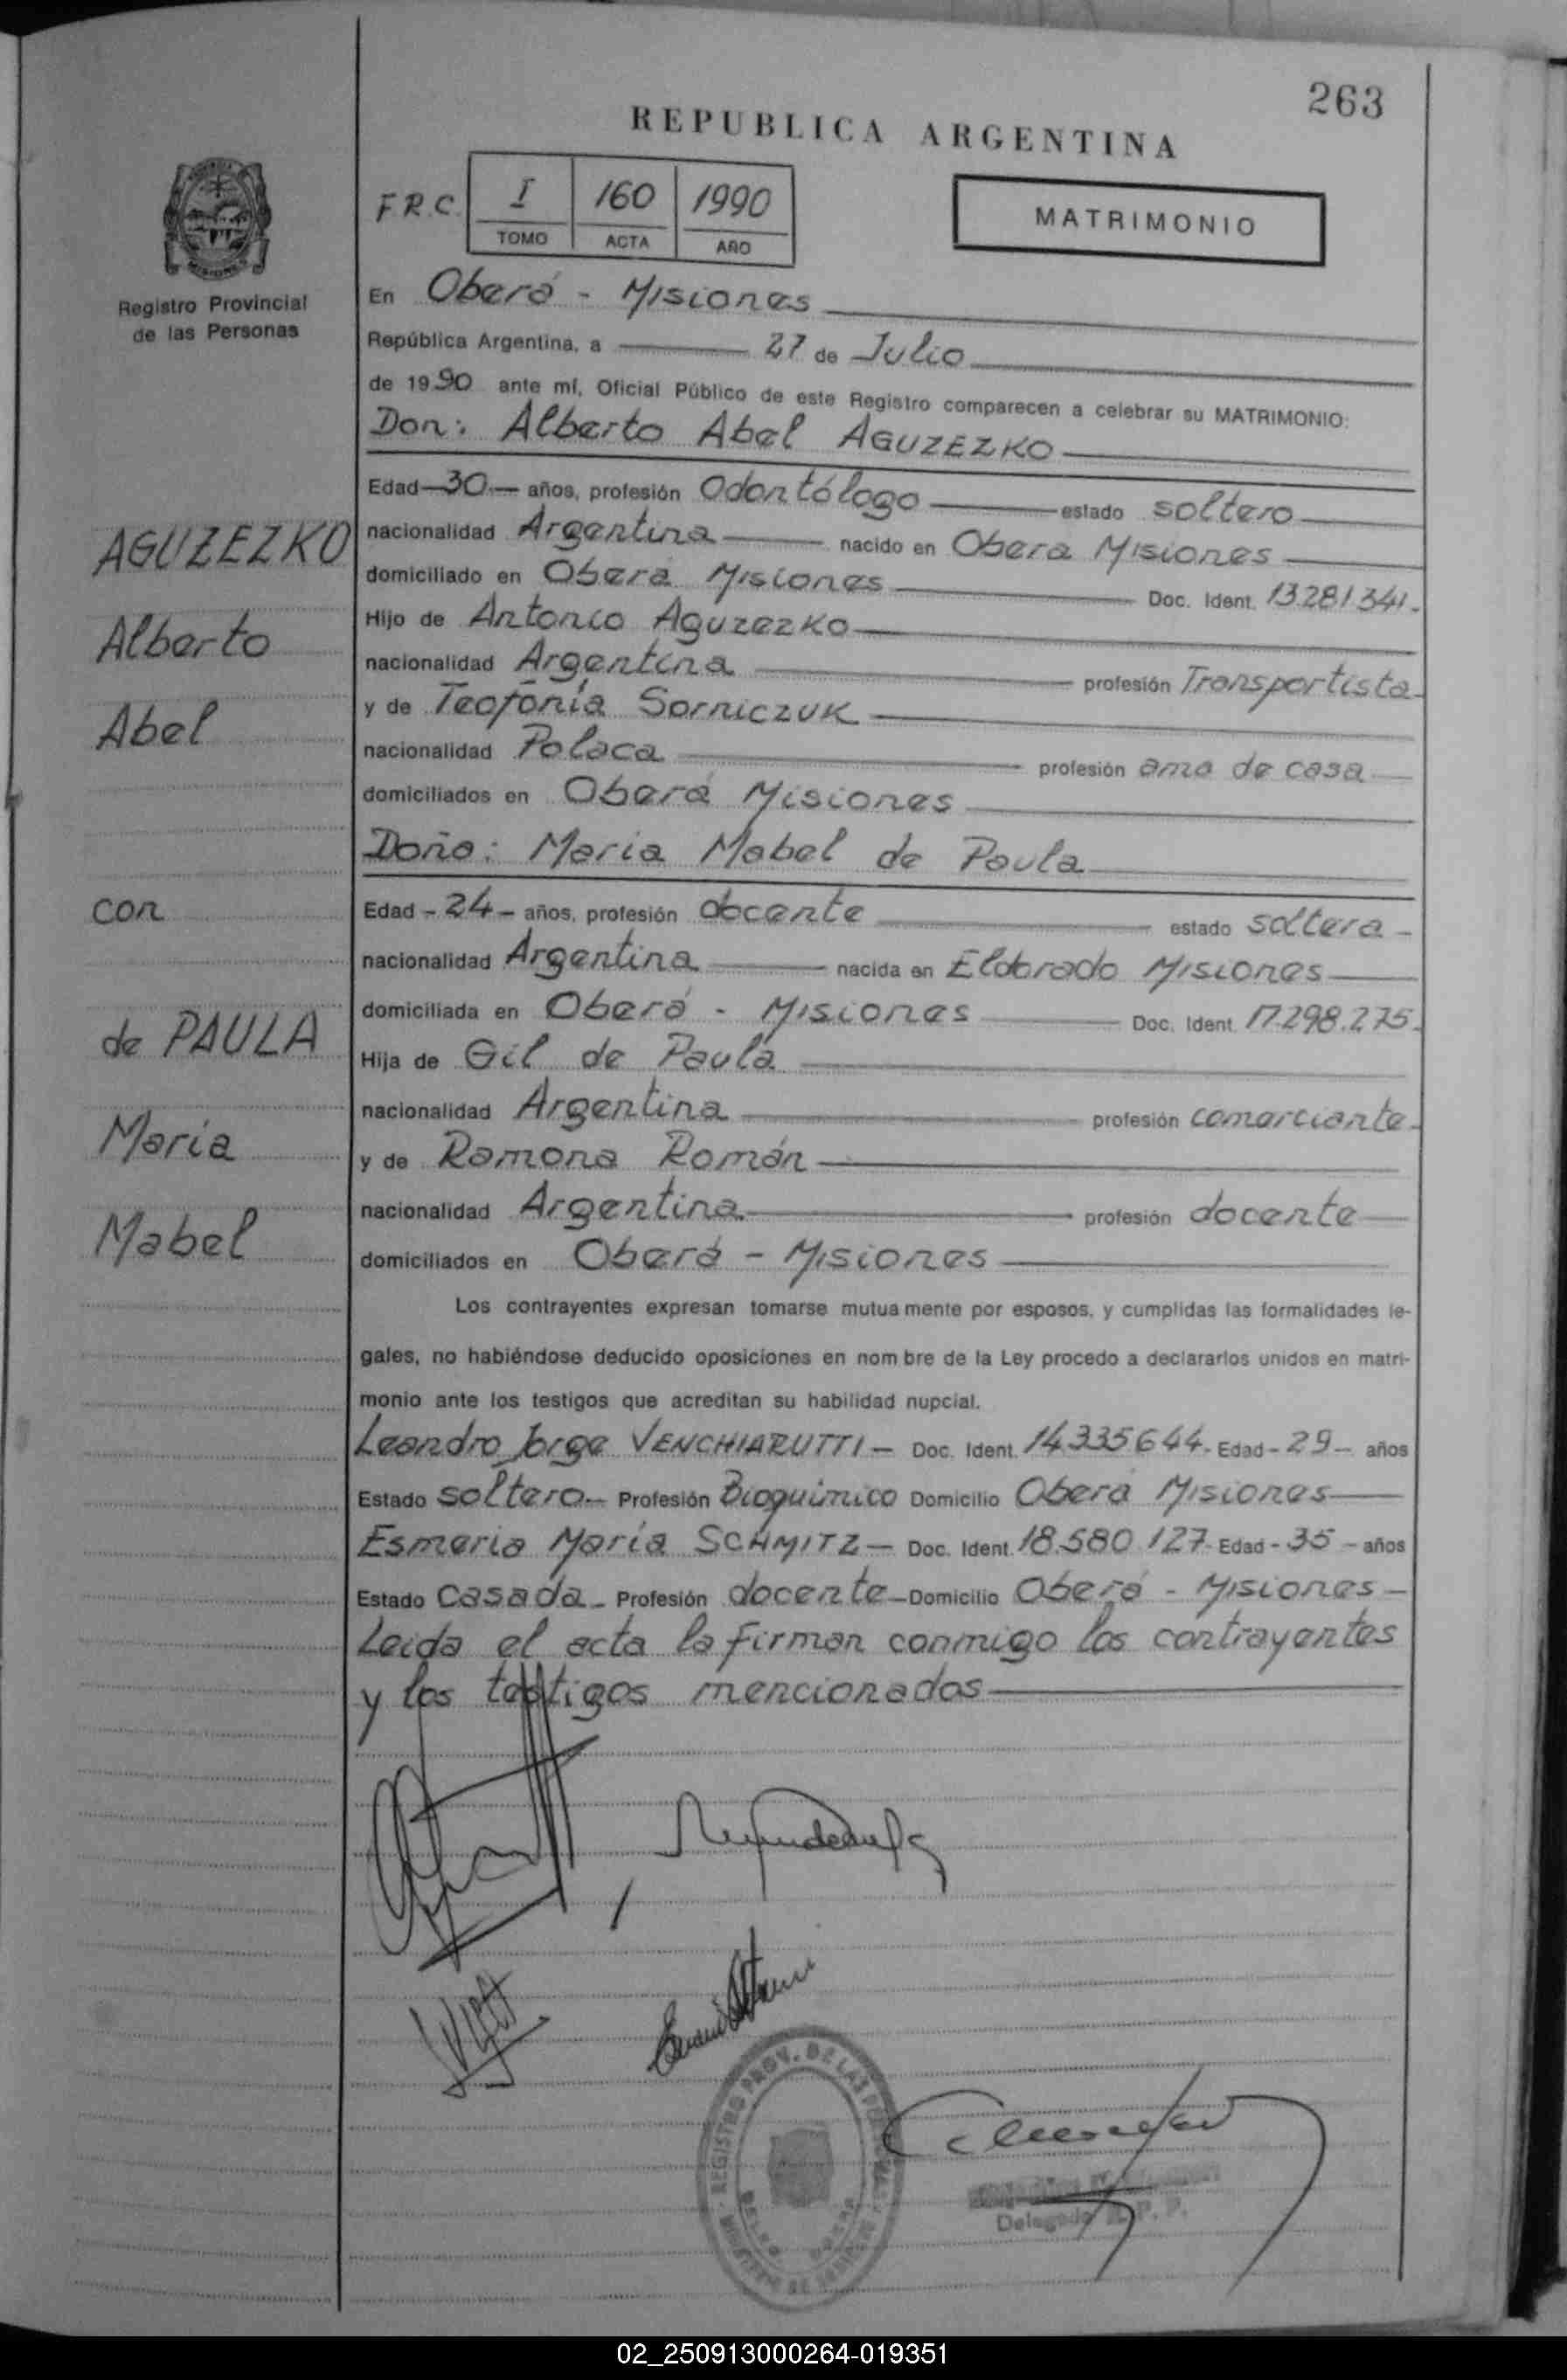 263
REPUBLICA ARGENTINA
F.R.C. I 160 1990
TOMO ACTA AÑO
MATRIMONIO
Registro Provincial
de las Personas
En Oberá - Misiones
República Argentina, a 27 de Julio
de 1990 ante mí, Oficial Público de este Registro comparecen a celebrar su MATRIMONIO:
Don: Alberto Abel AGUZEZKO
Edad 30 años, profesión Odontólogo estado soltero
nacionalidad Argentina nacido en Obera Misiones
domiciliado en Oberá Misiones Doc. Ident. 13281341.
Hijo de Antonio Aguzezko
nacionalidad Argentina profesión Transportista
y de Teofonía Sorniczuk
nacionalidad Polaca profesión ama de casa
domiciliados en Oberá Misiones
Doña: Maria Mabel de Paula
Edad - 24 - años, profesión docente estado soltera
nacionalidad Argentina nacida en Eldorado Misiones
domiciliada en Oberá - Misiones Doc. Ident. 17.298.275.
Hija de Gil de Paula
nacionalidad Argentina profesión comerciante
y de Ramona Román
nacionalidad Argentina profesión docente
domiciliados en Oberá - Misiones
AGUZEZKO
Alberto
Abel
con
de PAULA
María
Mabel
Los contrayentes expresan tomarse mutuamente por esposos, y cumplidas las formalidades le-
gales, no habiéndose deducido oposiciones en nombre de la Ley procedo a declararlos unidos en matri-
monio ante los testigos que acreditan su habilidad nupcial.
Leandro Jorge VENCHIARUTTI - Doc. Ident. 14.335644. Edad - 29 - años
Estado soltero. Profesión Bioquímico Domicilio Oberá Misiones
Esmeria María SCHMITZ - Doc. Ident. 18.580.127. Edad - 35 - años
Estado casada - Profesión docente - Domicilio Oberá - Misiones -
Leida el acta la firman conmigo los contrayentes
y los testigos mencionados
REGISTRO PROV. DE LAS
Delegado R. P. P.
02_250913000264-019351